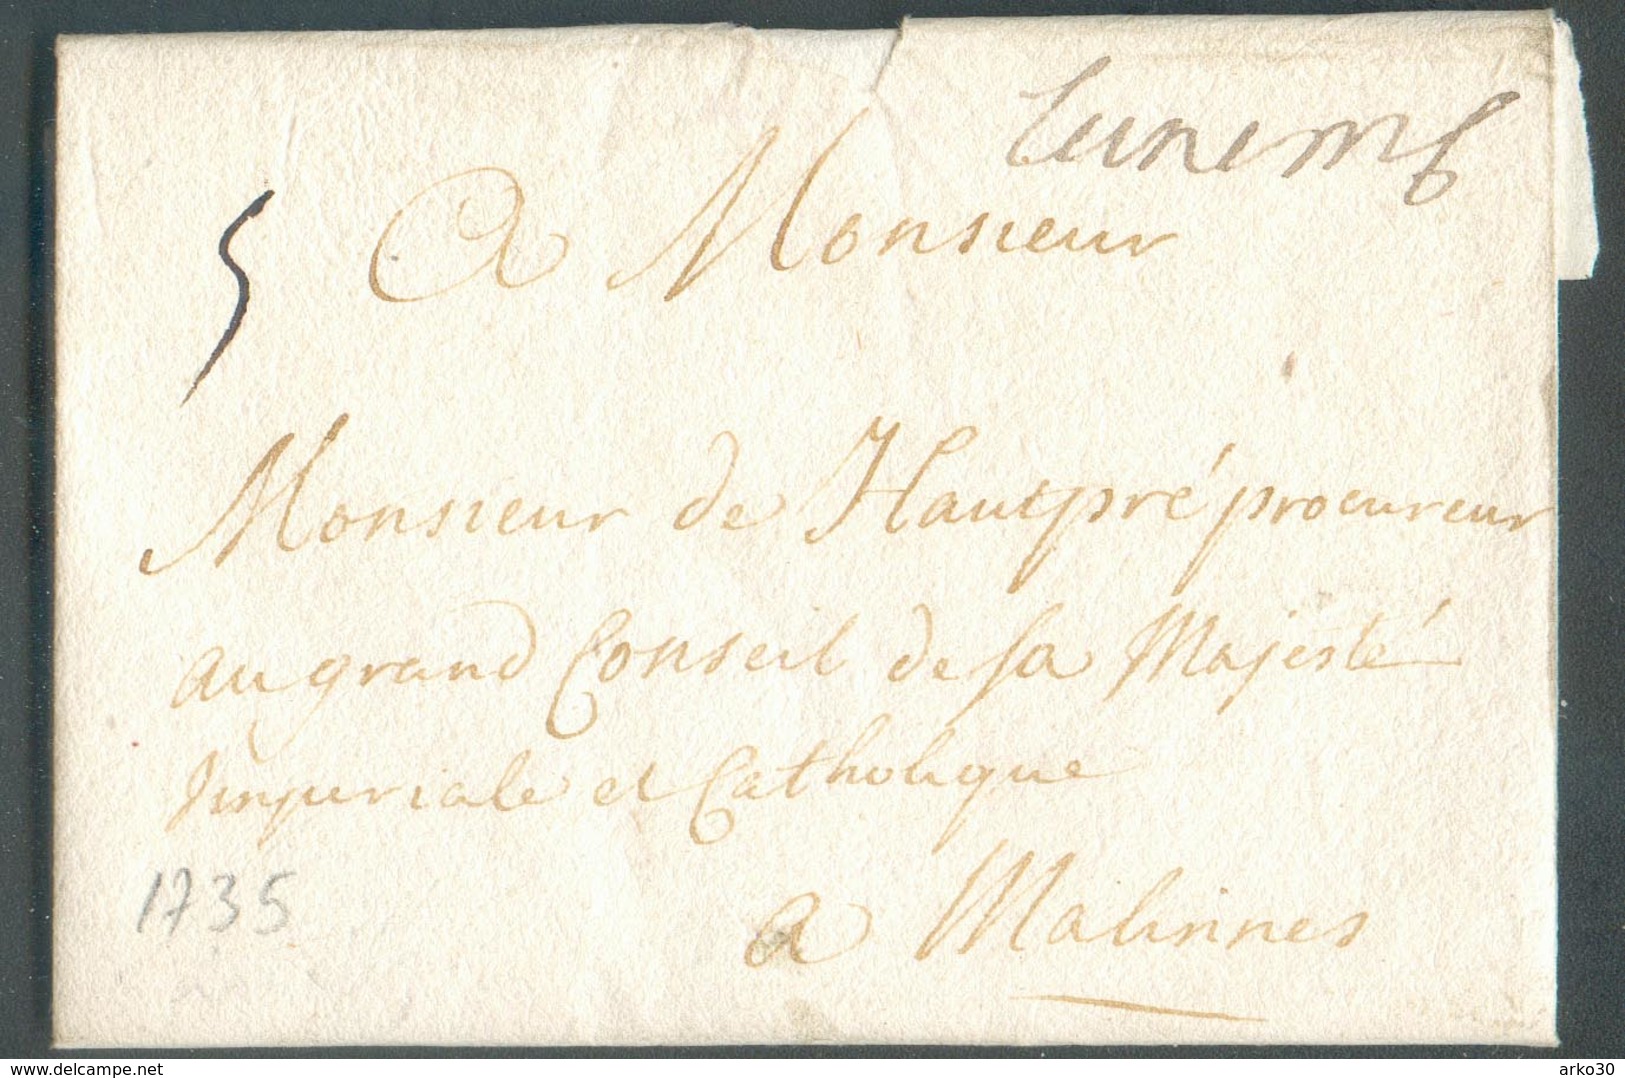 Luxemb
5
A Monsieur
Monsieur de Hautpré procureur
au grand Conseil de sa Majesté
Imperiale et Catholique
a Malinnes
1735
delcampe.net
arko30